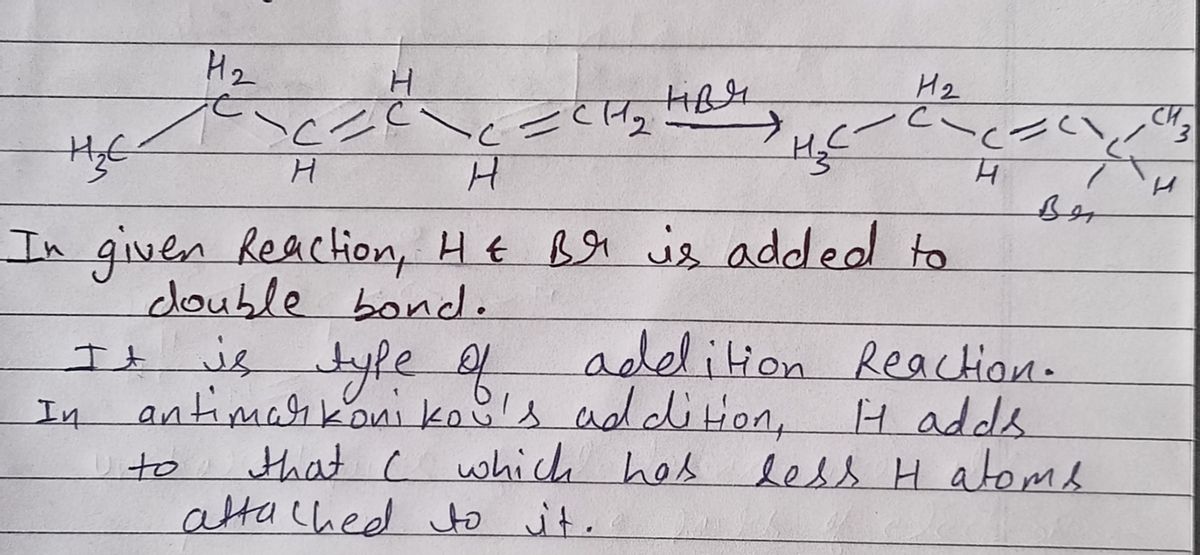 H3C H2 C C H = C H C H = CH2 HBr → H3C H2 C C H = C C CH3 H Br
In given Reaction, H & Br is added to
double bond.
It is type of addition Reaction.
In antimarkonikov's addition, H adds
to that C which has less H atoms
attached to it.